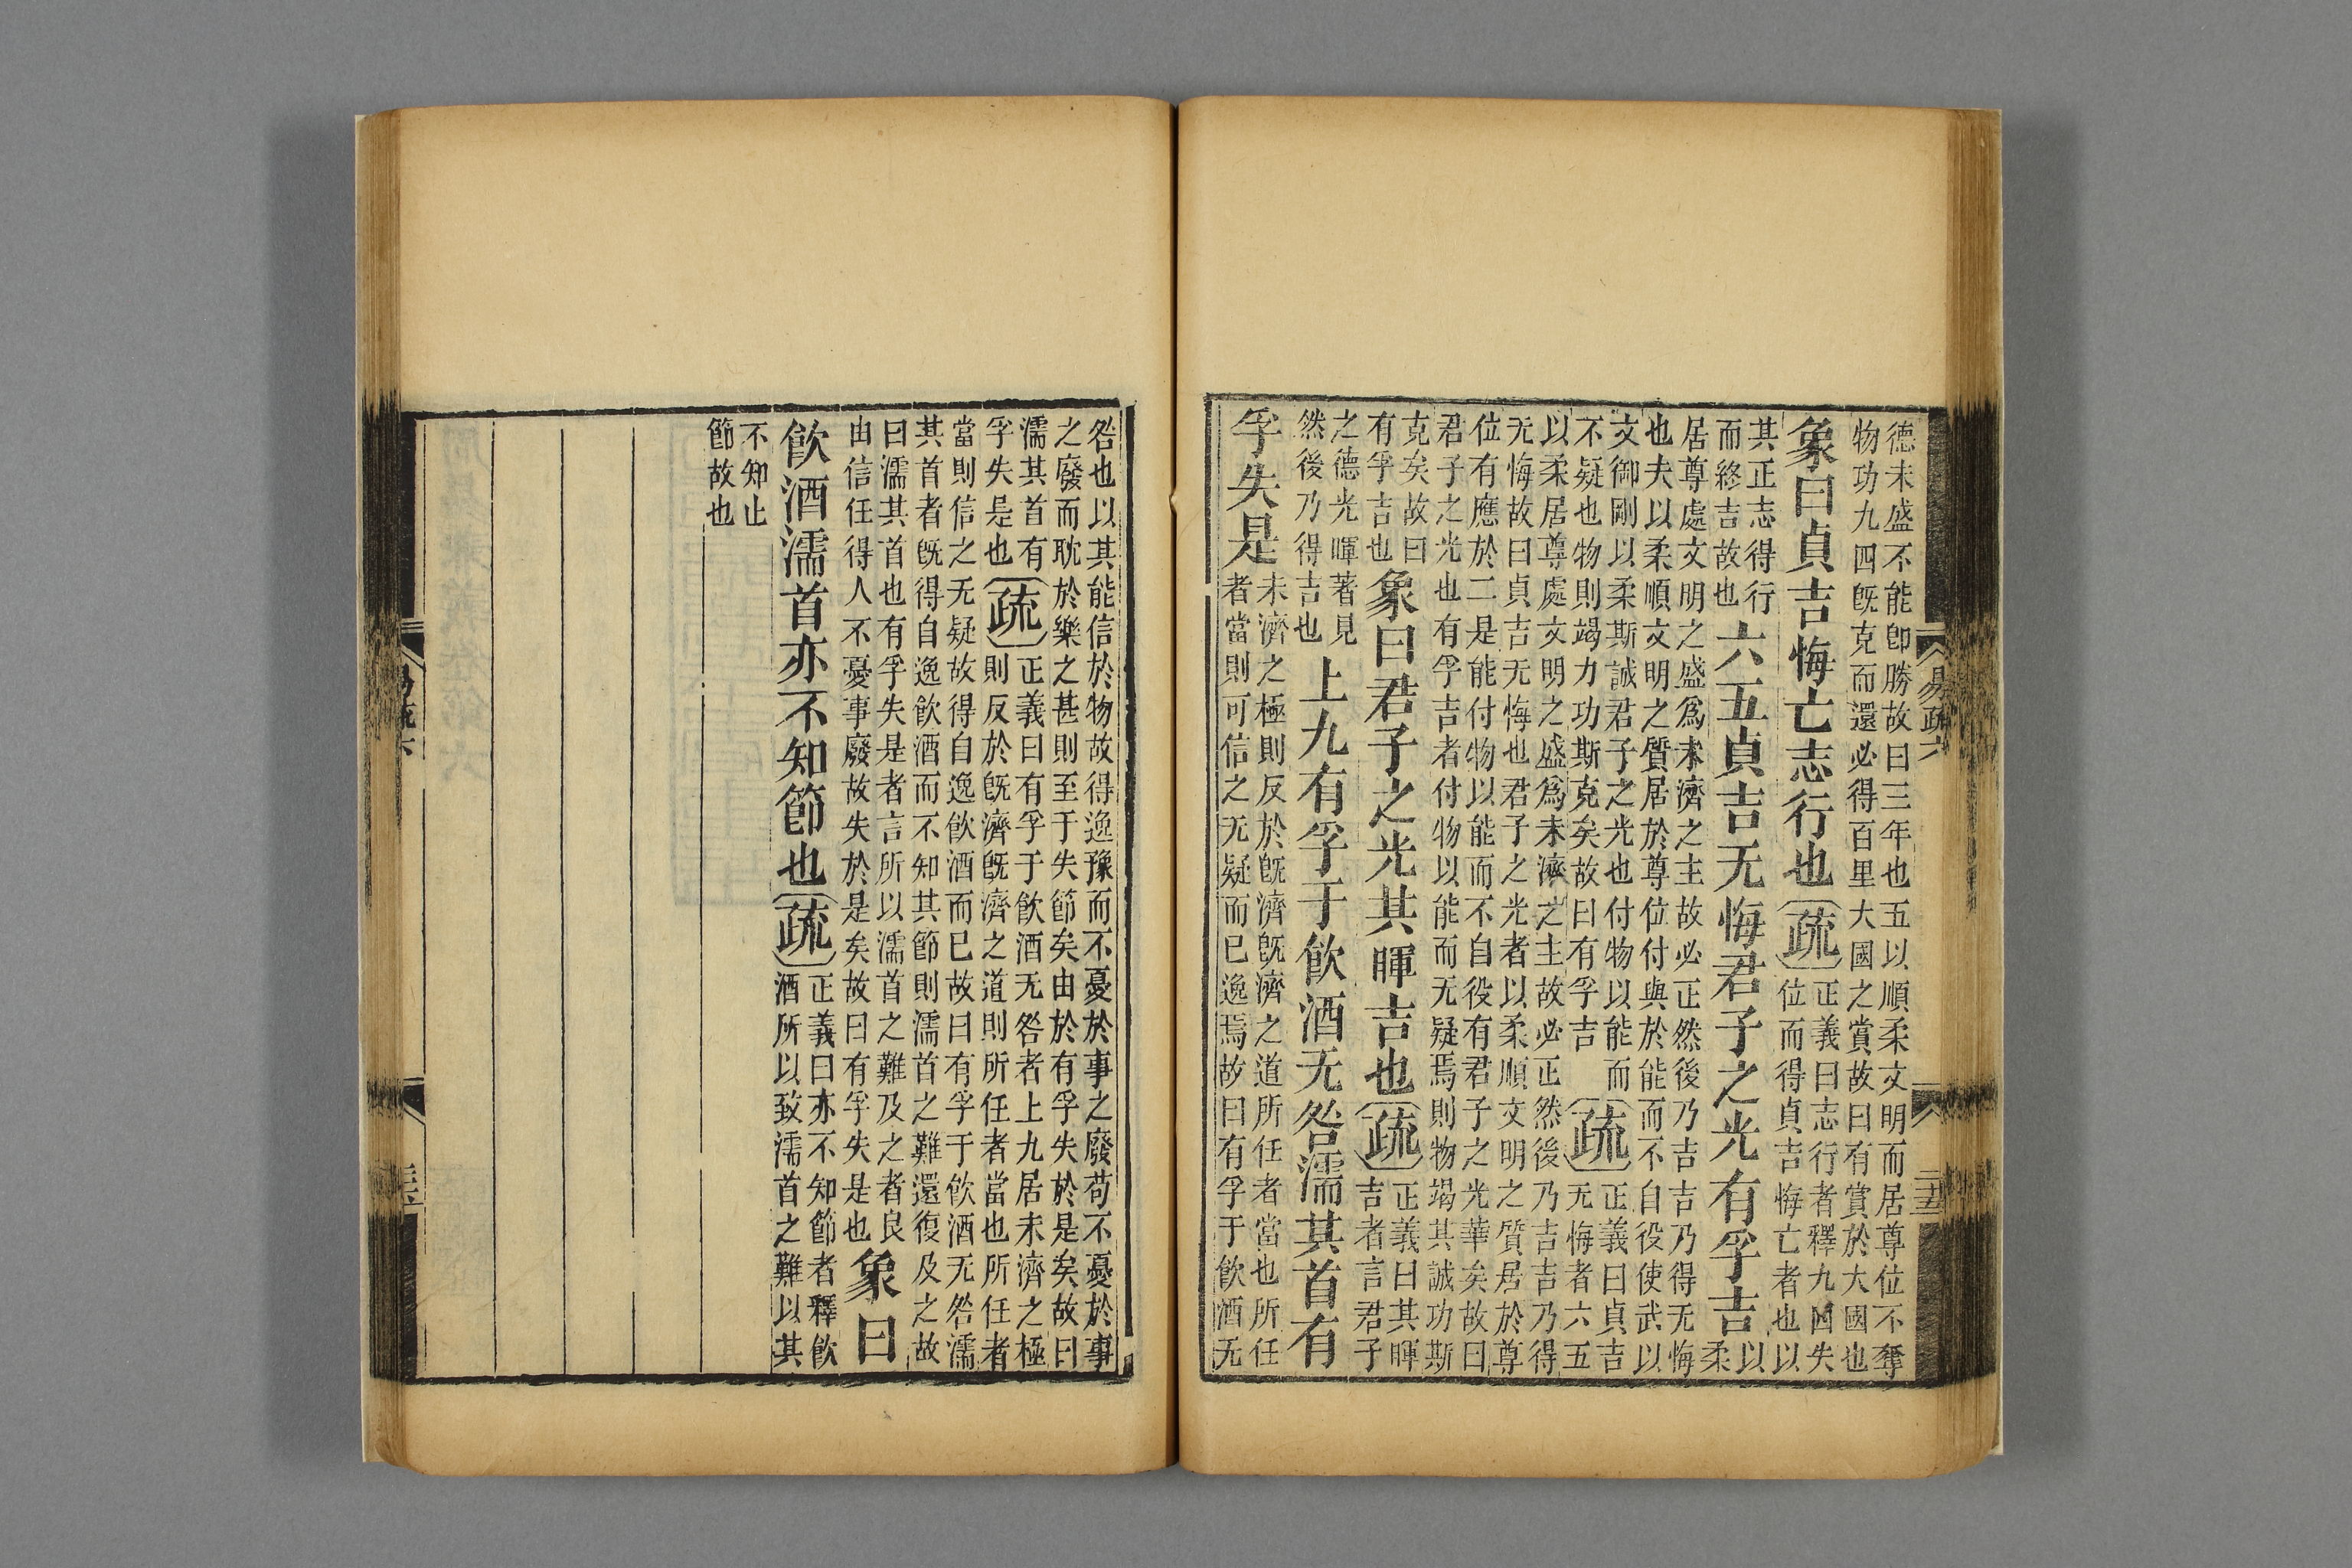 易疏六
二十五
德未盛不能即勝故曰三年也五以順柔文明而居尊位不奪
物功九四既克而還必得百里大國之賞故曰有賞於大國也
象曰貞吉悔亡志行也疏
正義曰志行者釋九四失
位而得貞吉悔亡者也以
其正志得行
而終吉故也
六五貞吉无悔君子之光有孚吉
以
柔
居尊處文明之盛爲未濟之主故必正然後乃吉吉乃得无悔
也夫以柔順文明之質居於尊位付與於能而不自役使武以
文御剛以柔斯誠君子之光也付物以能而
不疑也物則竭力功斯克矣故曰有孚吉
疏
正義曰貞吉
无悔者六五
以柔居尊處文明之盛爲未濟之主故必正然後乃吉吉乃得
无悔故曰貞吉无悔也君子之光者以柔順文明之質居於尊
位有應於二是能付物以能而不自役有君子之光華矣故曰
君子之光也有孚吉者付物以能而无疑焉則物竭其誠功斯
克矣故曰
有孚吉也
象曰君子之光其暉吉也疏
正義曰其暉
吉者言君子
之德光暉著見
然後乃得吉也
上九有孚于飲酒无咎濡其首有
孚失是
未濟之極則反於既濟既濟之道所任者當也所任
者當則可信之无疑而已逸焉故曰有孚于飲酒无
咎也以其能信於物故得逸豫而不憂於事之廢苟不憂於事
之廢而耽於樂之甚則至于失節矣由於有孚失於是矣故曰
濡其首有
孚失是也
疏
正義曰有孚于飲酒无咎者上九居未濟之極
則反於既濟既濟之道則所任者當也所任者
當則信之无疑故得自逸飲酒而已故曰有孚于飲酒无咎濡
其首者既得自逸飲酒而不知其節則濡首之難還復及之故
曰濡其首也有孚失是者言所以濡首之難及之者良
由信任得人不憂事廢故失於是矣故曰有孚失是也
象曰
飲酒濡首亦不知節也疏
正義曰亦不知節者釋飲
酒所以致濡首之難以其
不知止
節故也